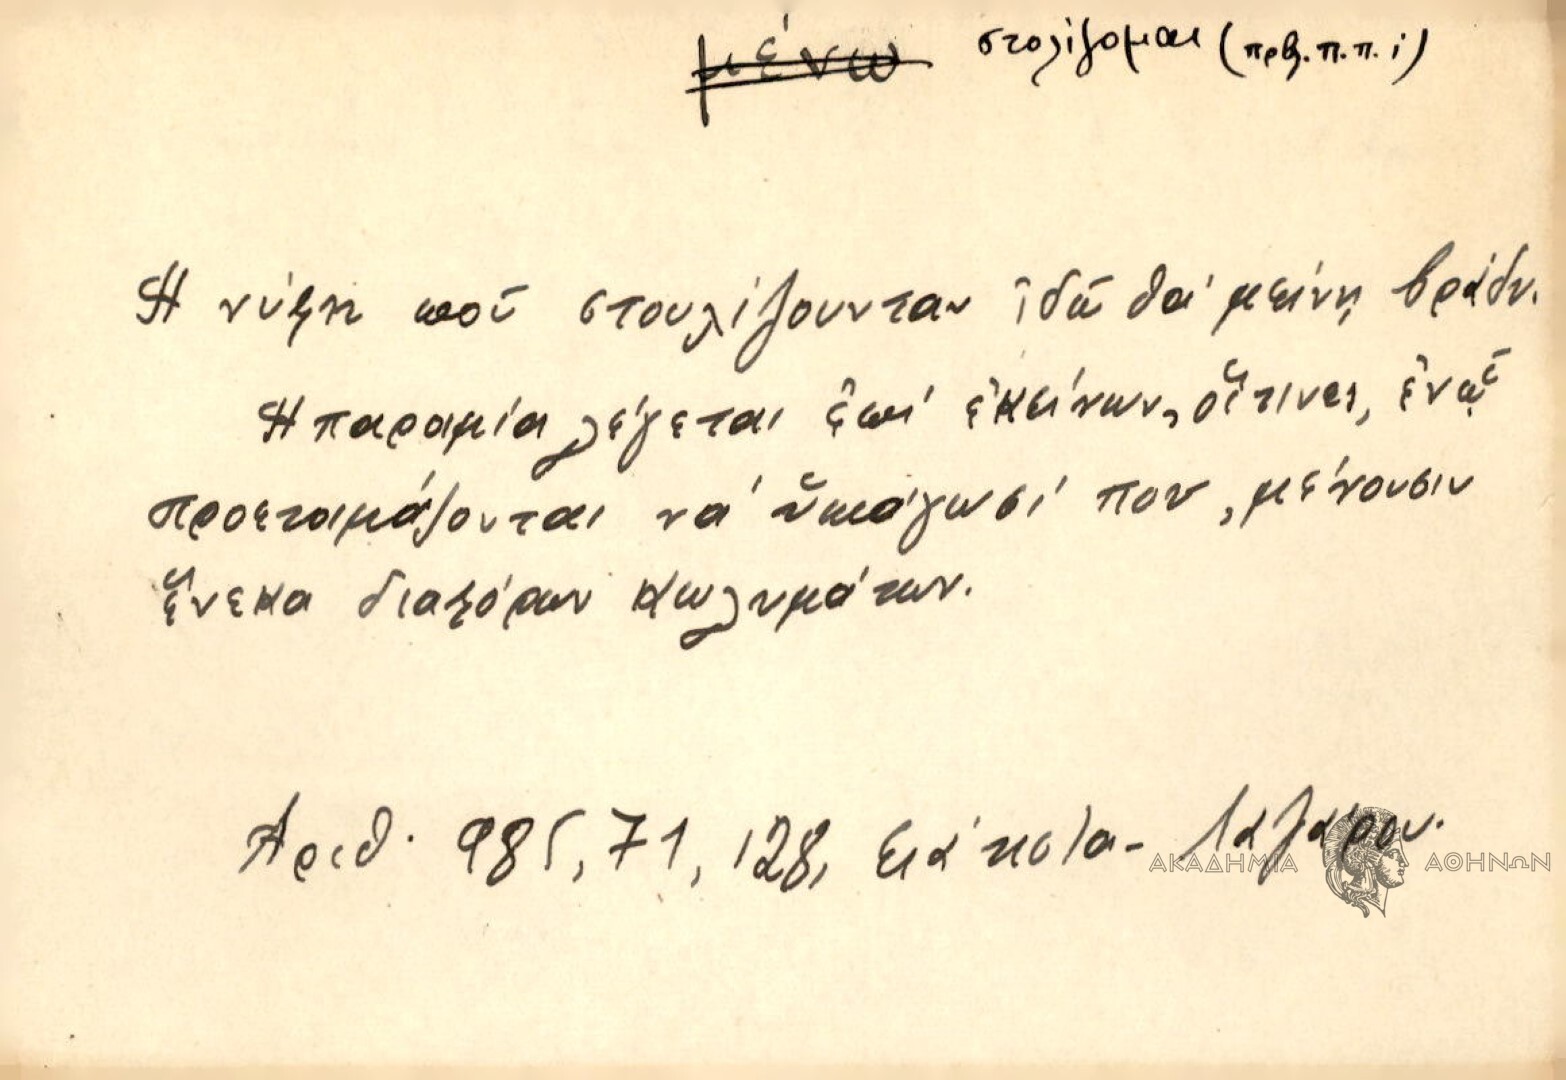 μένω στολίζομαι (πρβ. π.π. ί)
Ἡ νύφη ποὺ στουλίζουνταν ἰδῶ θὰ μείνῃ βράδυ.
Ἡ παροιμία λέγεται ἐπὶ ἐκείνων, οἵτινες, ἐνῷ
προετοιμάζονται νὰ ὑπάγωσί που, μένουσιν
ἕνεκα διαφόρων κωλυμάτων.
Ἀριθ. 985, 71, 128, Λαζάρου.
ΑΚΑΔΗΜΙΑ ΑΘΗΝΩΝ